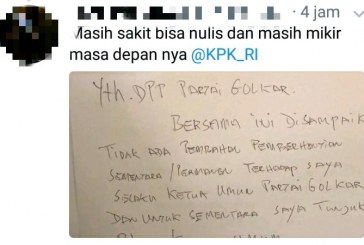 · 4 jam
Masih sakit bisa nulis dan masih mikir
masa depan nya @KPK_RI
Yth. DPP PARTAI GOLKAR.
BERSAMA INI DISAMPAIK
TIDAK ADA PEMBAHASAN PEMBERHENTIAN
SEMENTARA / PERMANEN TERHADAP SAYA
SELAKU KETUA UMUM PARTAI GOLKAR
DAN UNTUK SEMENTARA SAYA TUNJUK